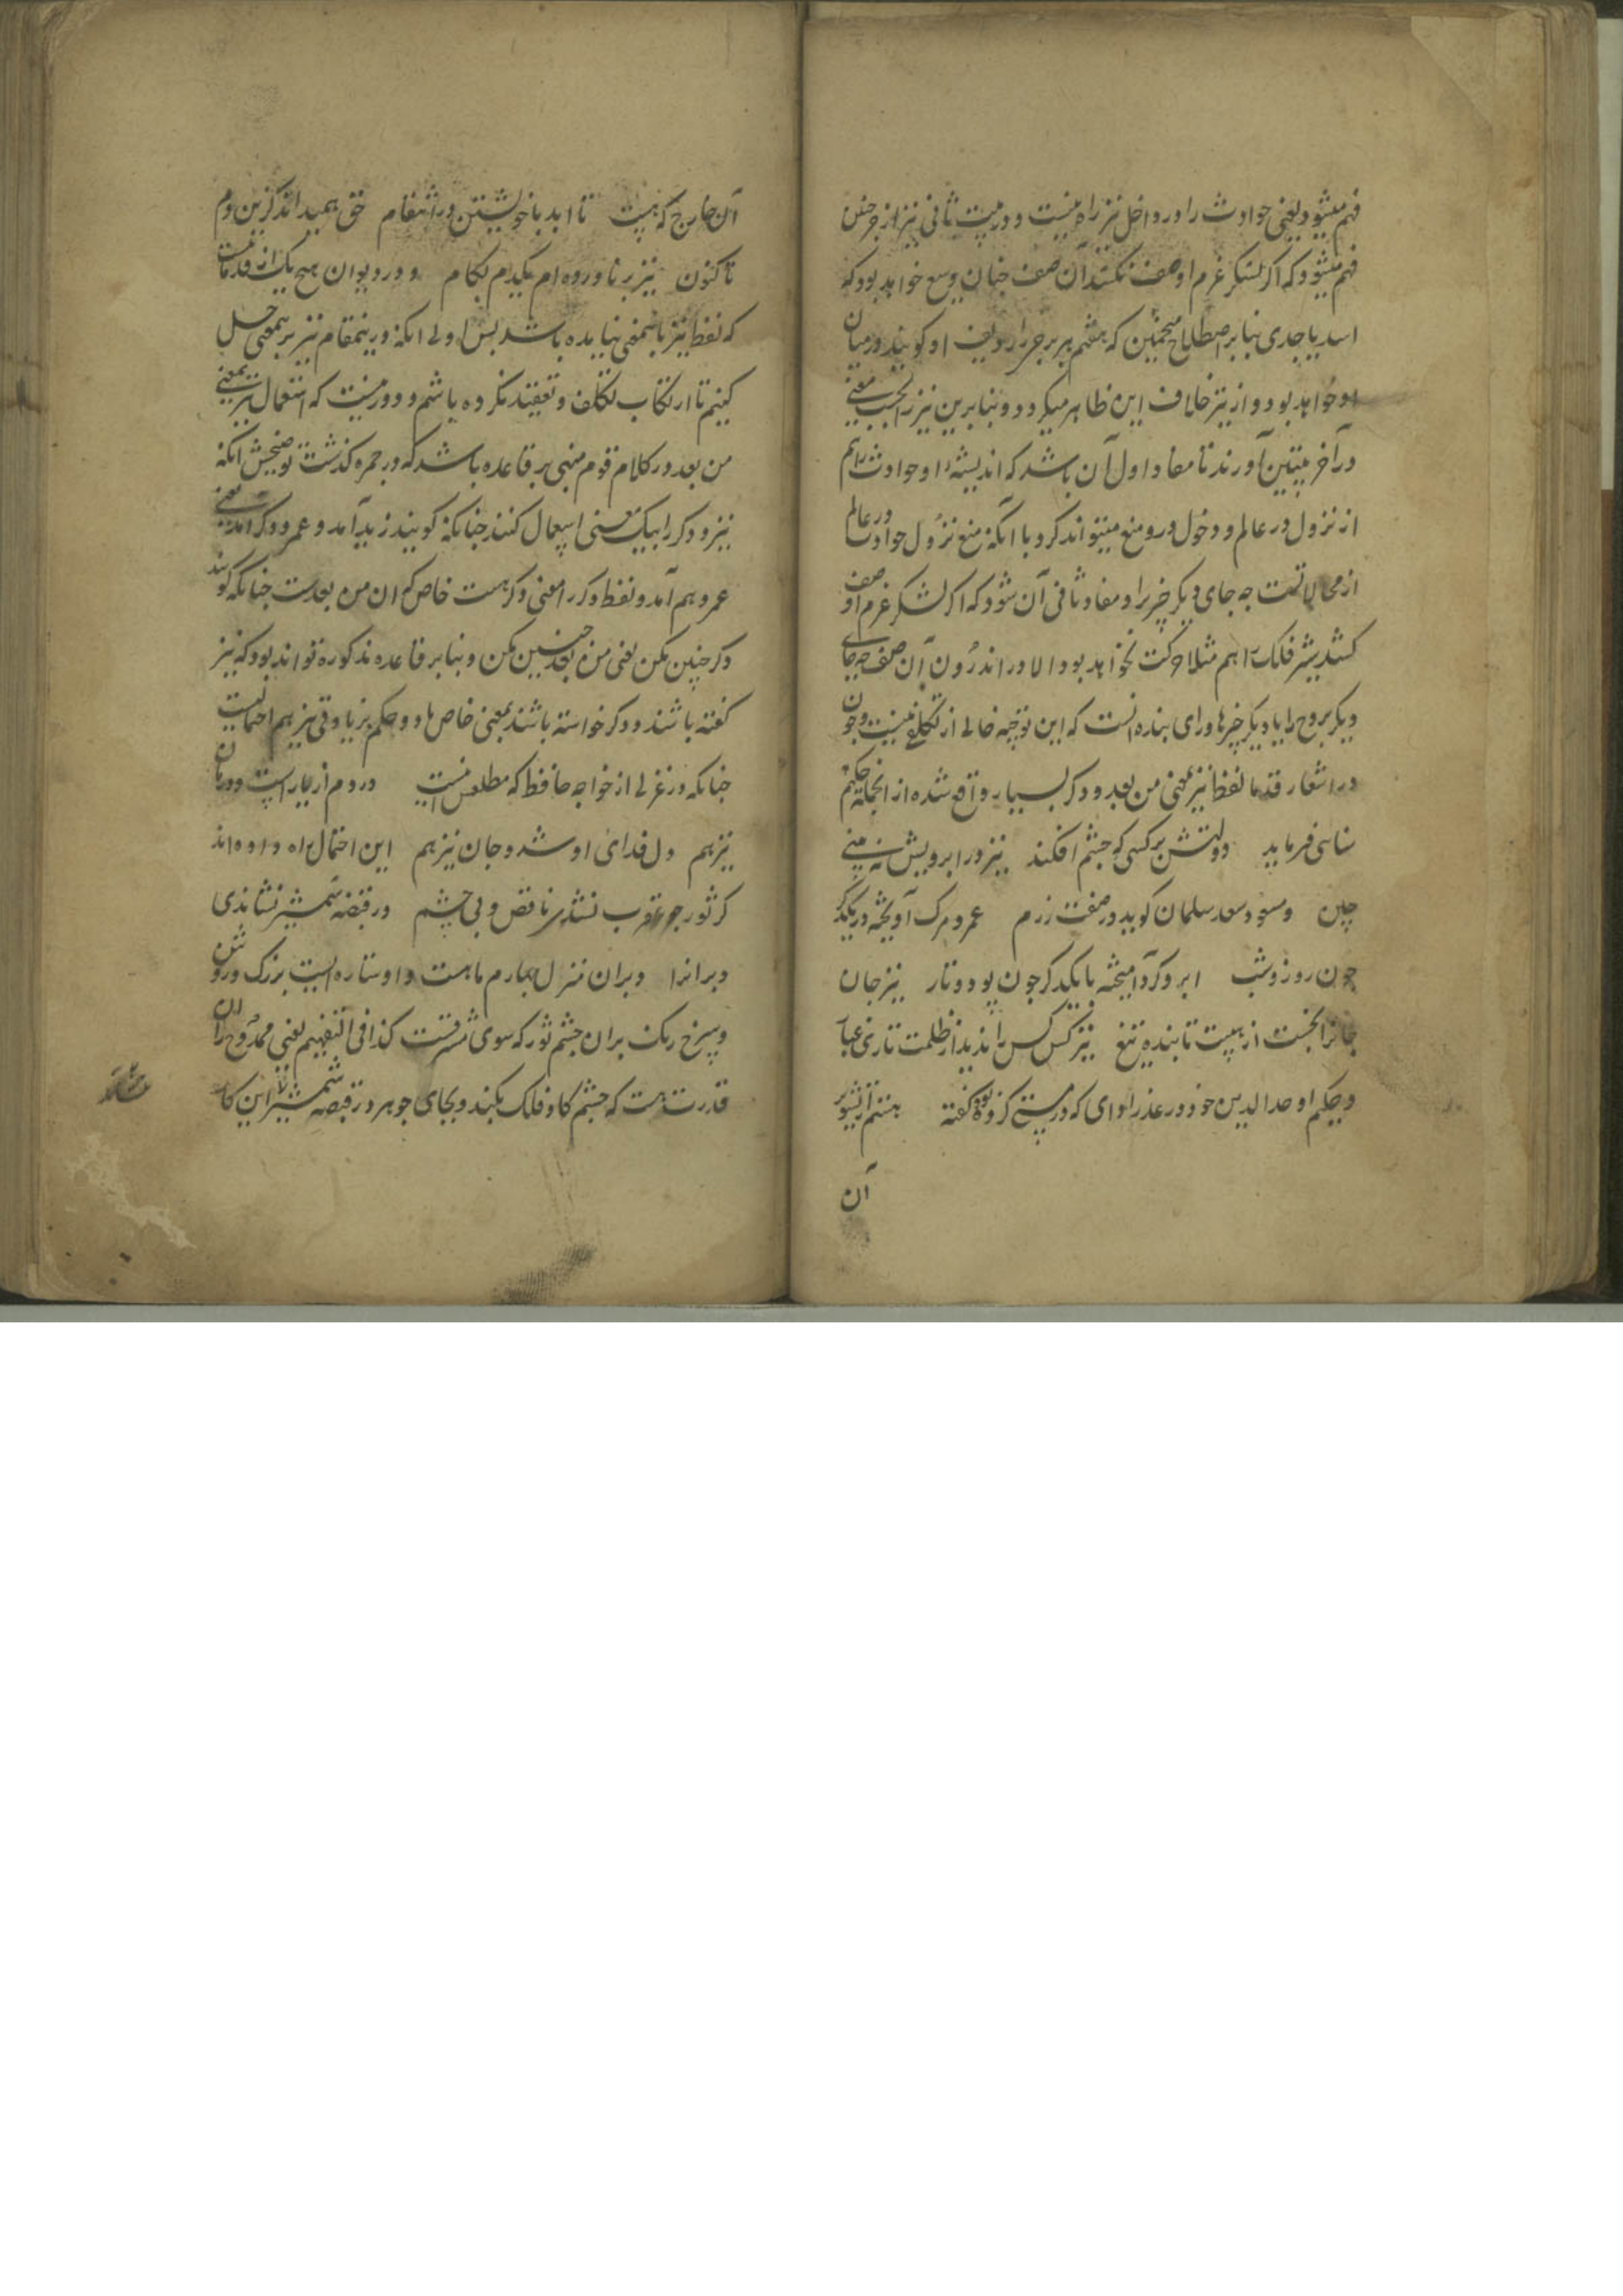 فهم میشود یعنی حوادث را درو داخل نیز راه نیست و در بیت ثانی نیز از جنس
فهم میشود که اگر لشکر عزم او صف نکشد آن صف چنان وسیع خواهد بود که
اسد یا جدی بنابر اصطلاح منجمین که هفتم هر برج را ردیف او کویند در میان
او خواهد بود و از نیز خلاف این ظاهر میکردد و بنابرین نیز را بحسب معنی
در آخر بیتین آورند تا مفاد اول آن باشد که اندیشهٔ او حوادث را هم
از نزول در عالم و دخول درو منع میتواند کرد با آنکه منع نزول حوادث در عالم
از محالاتست چه جای دیکر چیزها و مفاد ثانی آن شود که اکر لشکر عزم او صف
کشد شیر فلک را هم مثلا حرکت نخواهد بود الا در اندرون آن صف چه جای
دیکر بروج را یا دیکر چیزها و رای بنده انست که این توجیه خالی از تکلف نیست و چون
در اشعار قدما لفظ نیز بمعنی من بعد و دکر بسیار واقع شده از انجمله حکیم
سنائی فرماید دولتش بر کسی که چشم افکند نیز در ابرویش نه بینی
چین و مسعود سعد سلمان کوید در صفت رزم عمر و مرک آویخته در یکدکر
چون روز و شب ابر و کرد آمیخته با یکدکر چون پود و تار نیز جان
جانرا نجست از هیبت تابنده تیغ نیز کس کس را ندید از ظلمت تاری غبار
و حکیم اوحد الدین خود در عذر ای که در مستی کرده بوده کفته هستم از تشویر
آن
آن خارج که هیبت تا ابد با خویشتن در انتقام حق همیداند کزین دم
تا کنون نیز بر ناورده ام یکدم بکام و در دیوان هیچ یک از قدما نیست
که لفظ نیز باینمعنی نیامده باشد پس اولی انکه درینمقام نیز بر بمعنی حمل
کنیم تا ارتکاب تکلف و تعقید نکرده باشم و دور نیست که استعمال نیز بمعنی
من بعد در کلام قوم مبنی بر قاعده باشد که در جمره کذشت توضیحش انکه
نیز و دکر را بیک معنی استعمال کنند چنانکه کویند زید آمد و عمرو دکر آمد یعنی
عمرو هم آمد و لفظ دکر را معنی دکر هست خاص که ان من بعدست چنانکه کویند
دکر چنین مکن یعنی من بعد چنین مکن و بنابر قاعده مذکوره تواند بود که نیز
کفته باشند و دکر خواسته باشند بمعنی خاص او و حکم نیز یاوقی نیز هم احتمالیست
چنانکه در غزلی از خواجه حافظ که مطلعش اینست دردم از یارست و درمان
نیز هم دل فدای او شد و جان نیز هم این احتمال راه داده اند
کر ثور چو عقرب نشدی ناقص و بی چشم در قبضه شمشیر نشاندی
دبرانرا دبران منزل چهارم ماهست و او ستاره ایست بزرک و روشن
و سرخ رنک بران چشم ثور که سوی مشرقست کذا فی التفهیم یعنی ممدوح را آن
قدرت هست که چشم کاو فلک بکند و بجای جوهر در قبضه شمشیر این کا